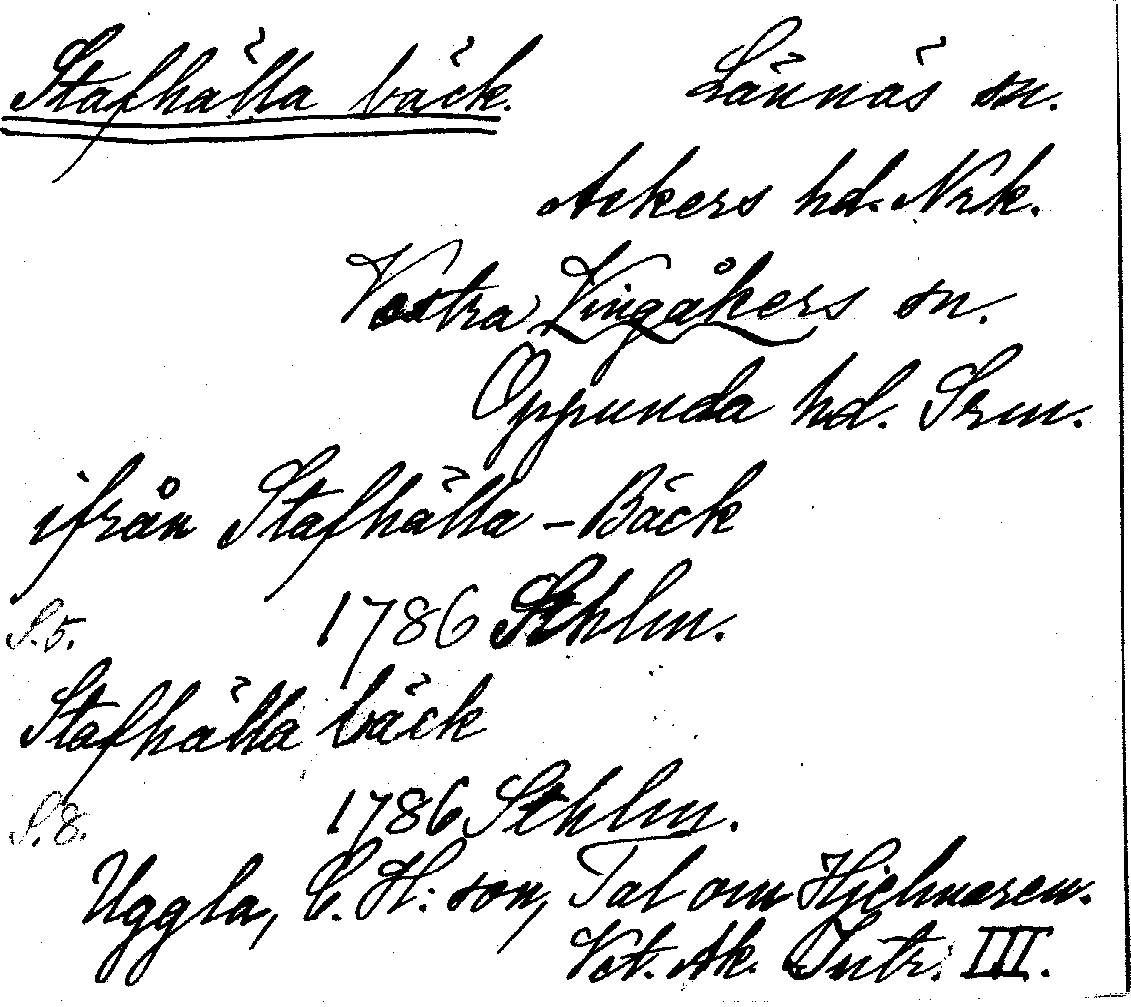 Stafhälla bäck. Lännäs sn.
Askers hd. Nrk.
Vestra Vingåkers sn.
Oppunda hd. Srm.
ifrån Stafhälla-Bäck
S.5. 1786 Sthlm.
Stafhälla bäck
S.8. 1786 Sthlm.
Uggla, C. H:son, Tal om Hjelmaren.
Vet. Ak. Intr. III.